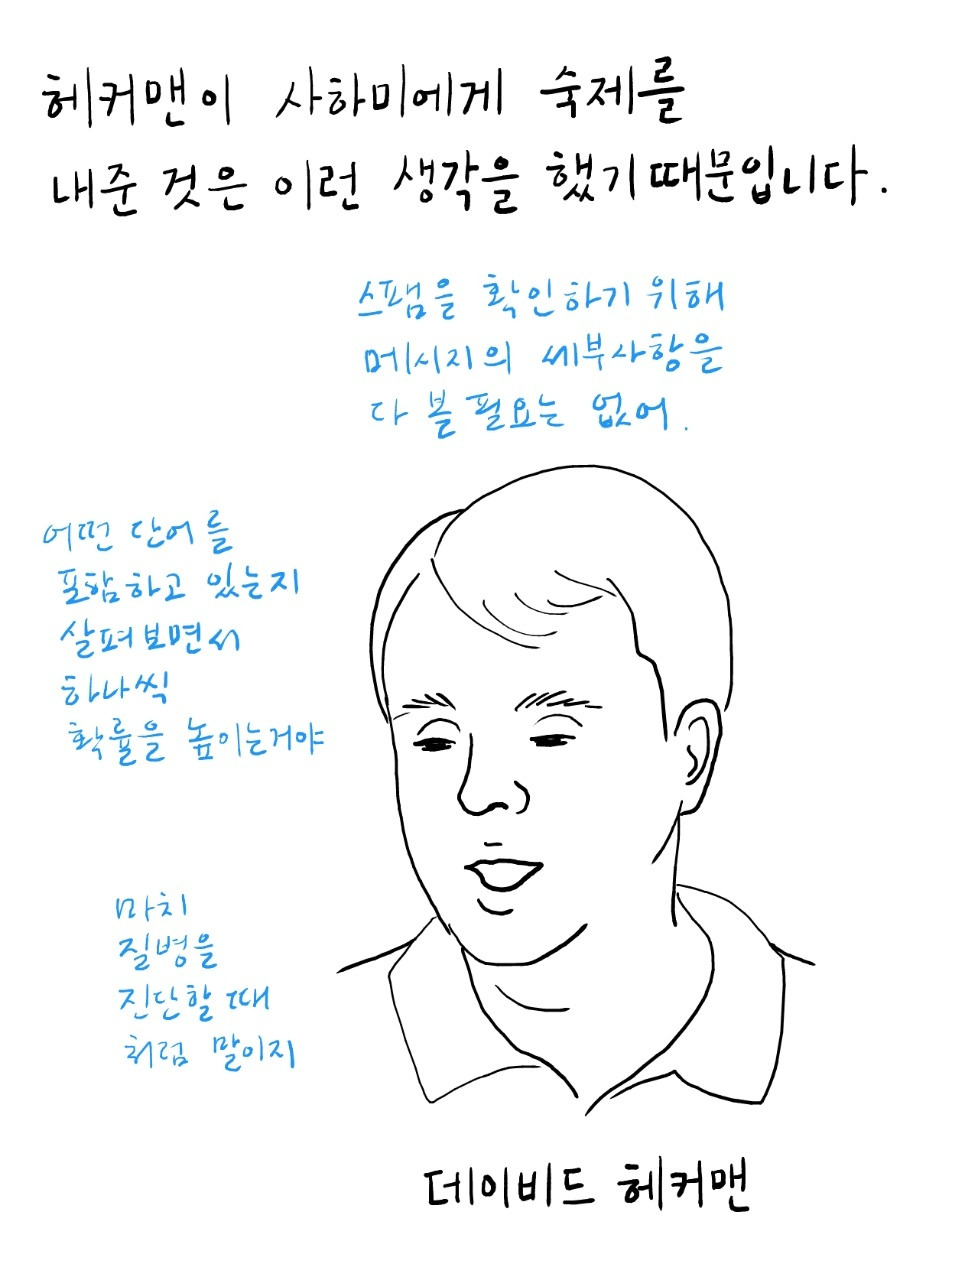 헤커맨이 사하미에게 숙제를
내준 것은 이런 생각을 했기 때문입니다.
스팸을 확인하기 위해
메시지의 세부사항을
다 볼 필요는 없어.
어떤 단어를
포함하고 있는지
살펴보면서
하나씩
확률을 높이는거야
마치
질병을
진단할 때
처럼 말이지
데이비드 헤커맨